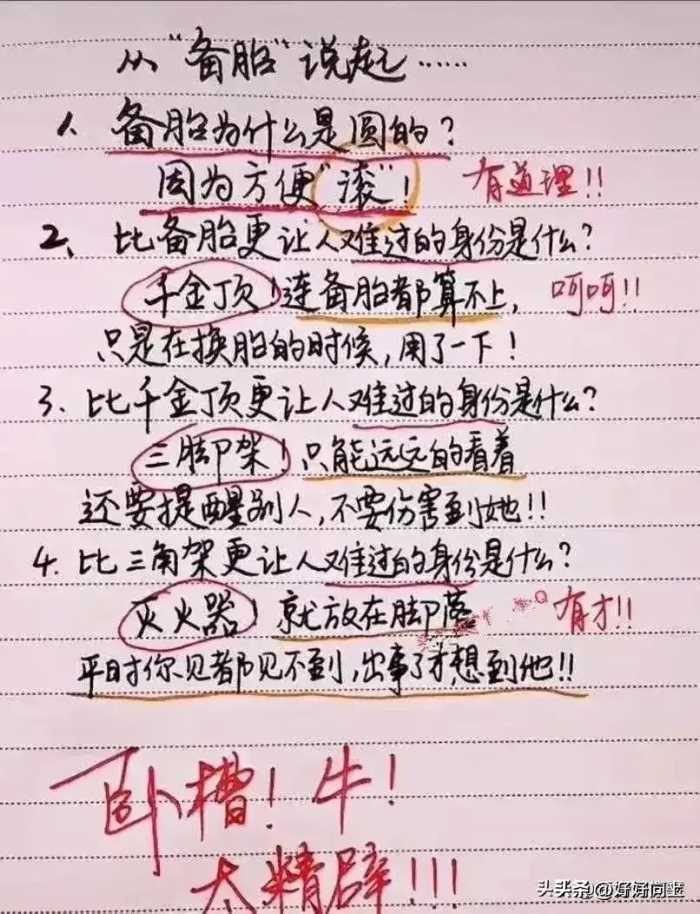 从"备胎"说起……
1、备胎为什么是圆的?
因为方便"滚"! 有道理!!
2、比备胎更让人难过的身份是什么?
千金顶!连备胎都算不上, 呵呵!!
只是在换胎的时候,用了一下!
3、比千金顶更让人难过的身份是什么?
三脚架!只能远远的看着
还要提醒别人,不要伤害到她!!
4、比三角架更让人难过的身份是什么?
灭火器!就放在脚落 有才!!
平时你见都见不到,出事了才想到他!!
卧槽!牛!
太精辟!!!
头条@好好同学